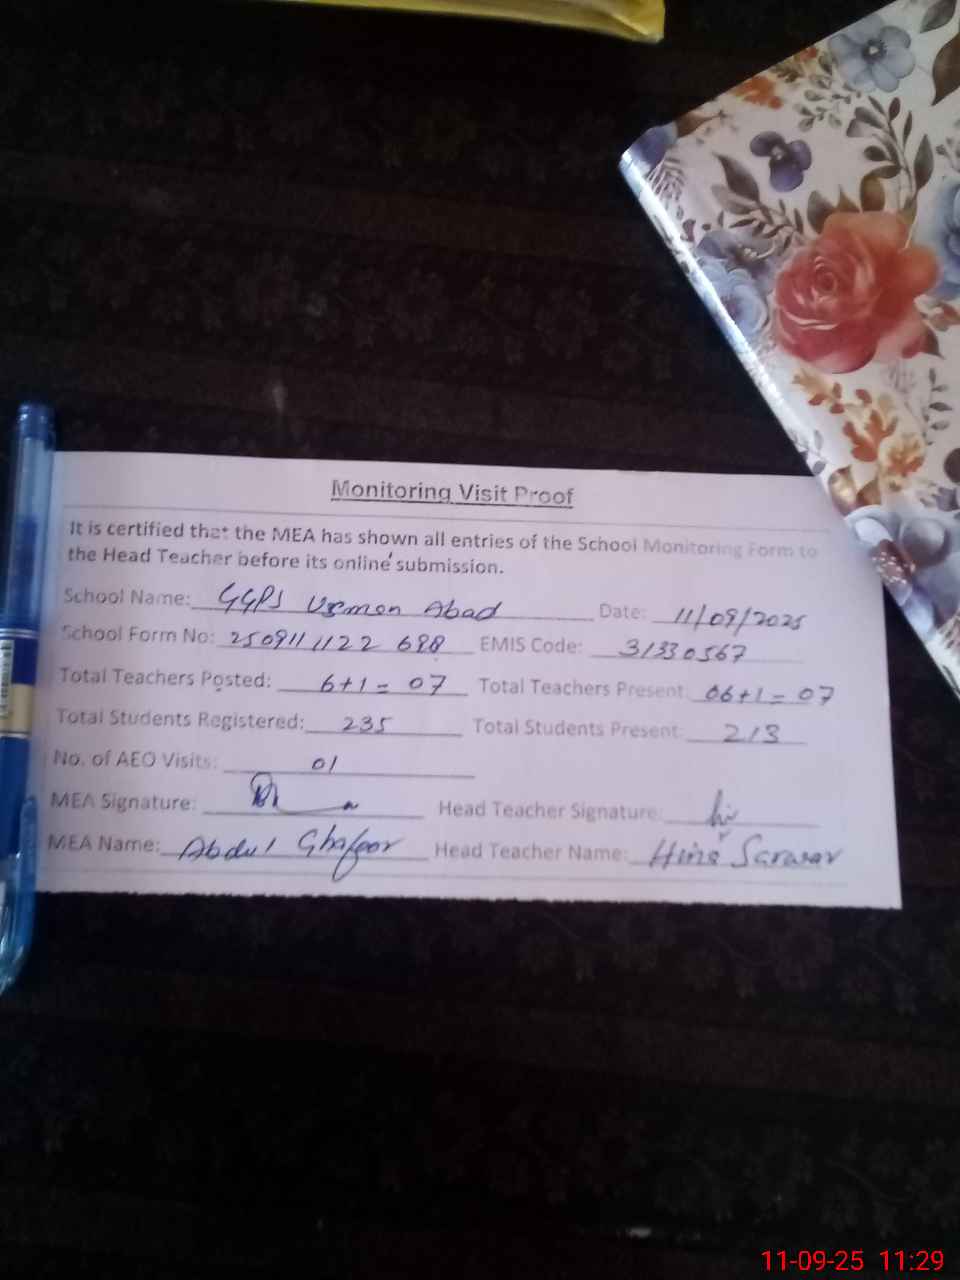 Monitoring Visit Proof
It is certified that the MEA has shown all entries of the School Monitoring Form to
the Head Teacher before its online submission.
School Name: GGPS Usman Abad Date: 11/09/2025
School Form No: 2509111122 698 EMIS Code: 31330567
Total Teachers Posted: 6+1= 07 Total Teachers Present: 06+1= 07
Total Students Registered: 235 Total Students Present: 213
No. of AEO Visits: 01
MEA Signature: Head Teacher Signature:
MEA Name: Abdul Ghafoor Head Teacher Name: Hina Sarwar
11-09-25 11:29